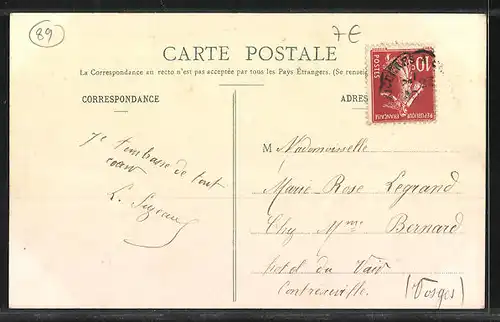 89
7€
CARTE POSTALE
La Correspondance au recto n'est pas acceptée par tous les Pays Étrangers. (Se rensei
CORRESPONDANCE
ADRES
10
POSTES
REPUBLIQUE FRANÇAISE
Je t'embrasse de tout
cœur
M Mademoiselle
Marie-Rose Legrand
Chy Mme Bernard
hotel du Vair
Contrexeville.
(Vosges)